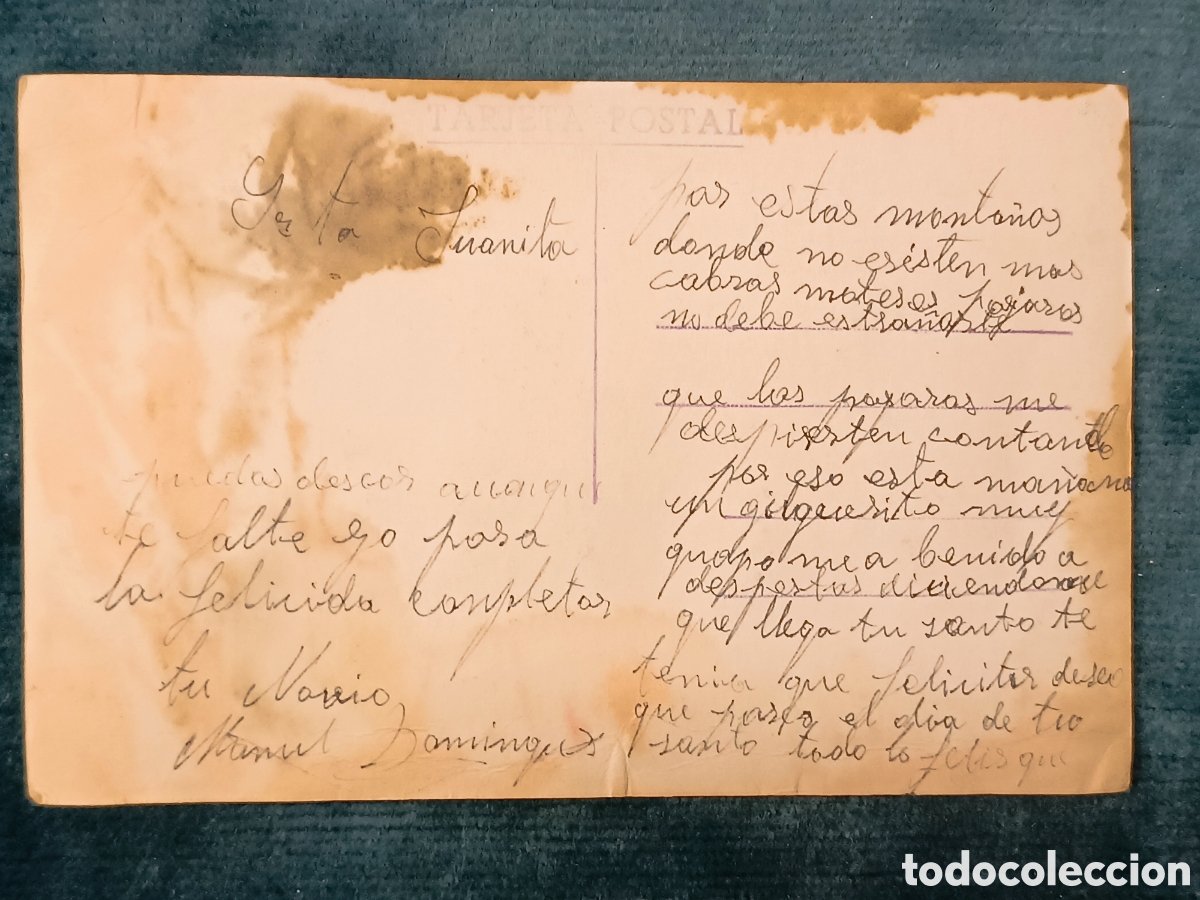 TARJETA POSTAL
Srta Juanita
por estas montañas
donde no esisten mas
cabras moteses pajaros
no debe estrañarte
que los pagaros me
despierten contando
por eso esta mañana
un gilguerito muy
guapo me a benido a
despertar diciendome
que llega tu santo te
tenia que felicitar deseo
que pases el dia de tu
santo todo lo felis que
puedas desear aunque
te falte yo para
la felicida conpletar
tu Novio
Manuel Domingues
todocoleccion